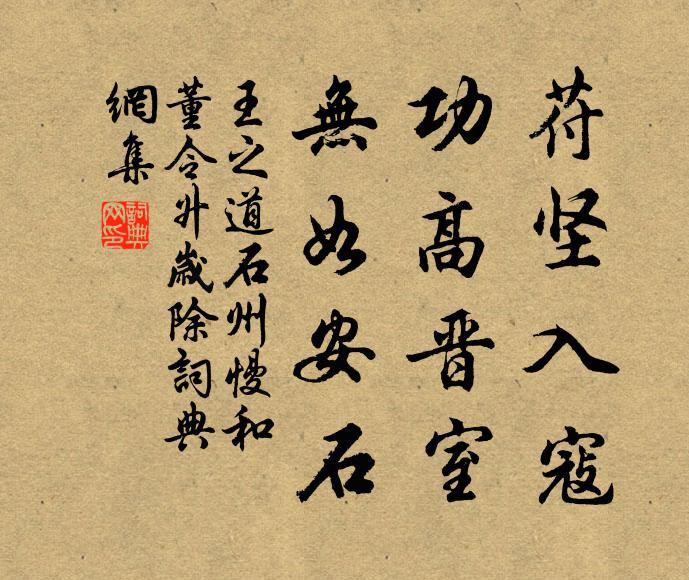 苻坚入寇
功高晋室
無如安石
王之道石州慢和
董令升歲除詞典
網集
詞典
网印